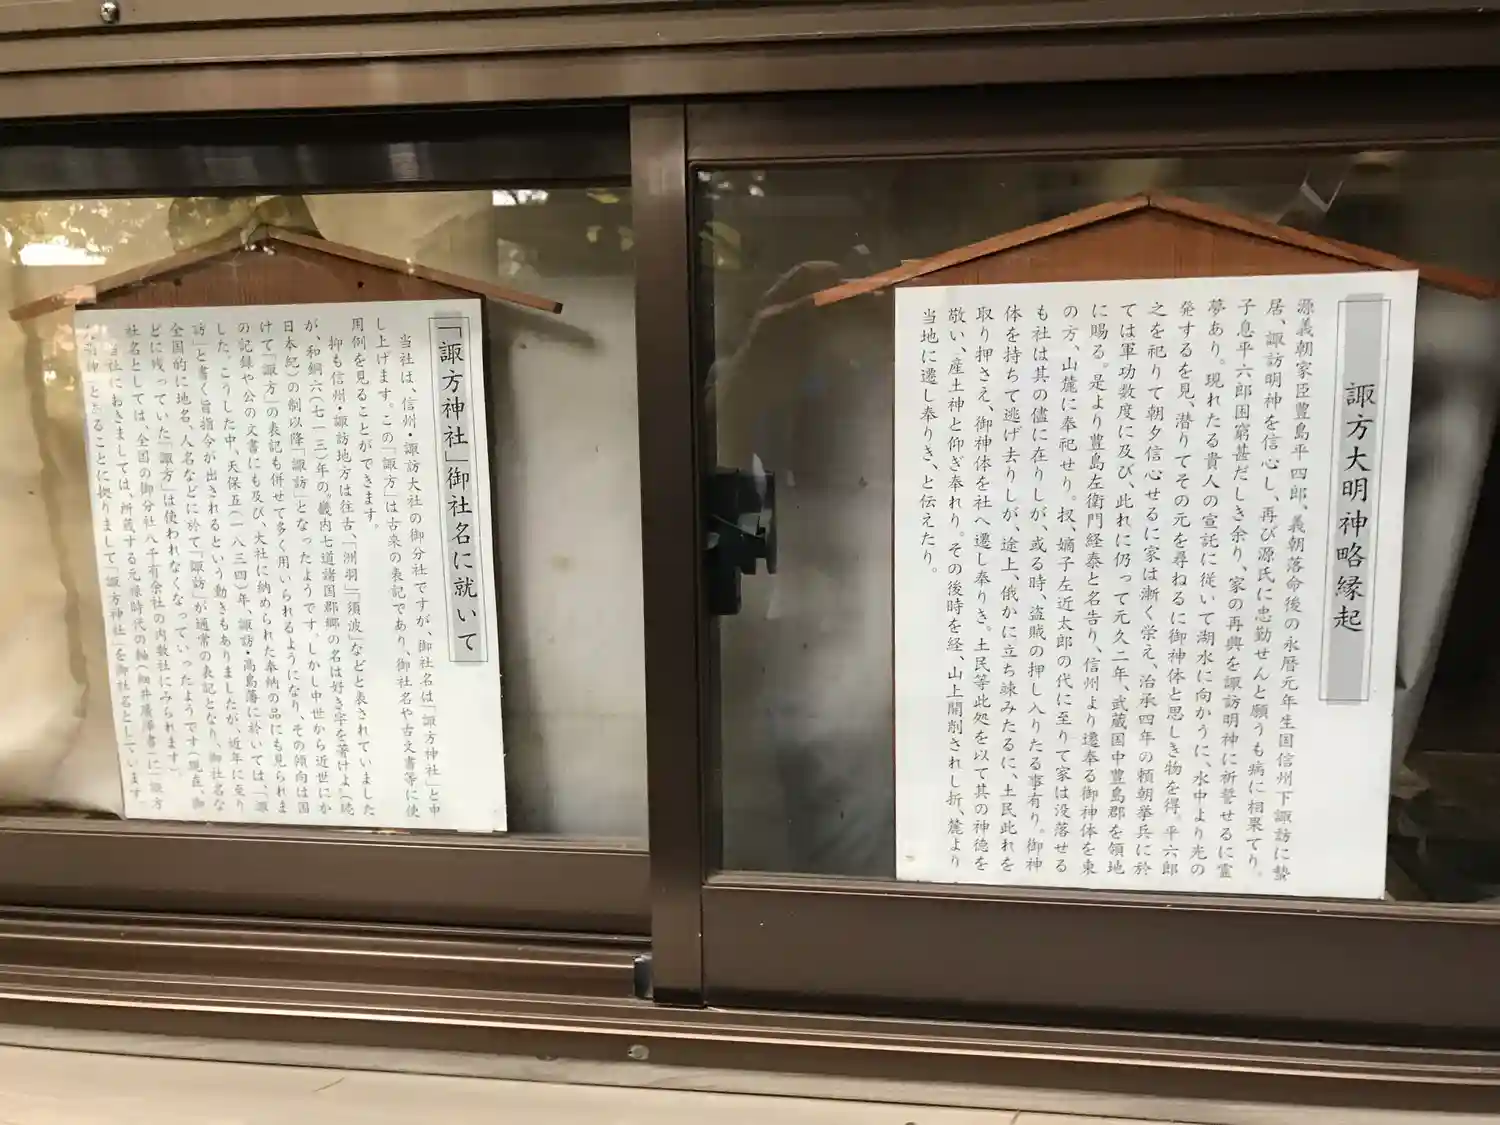 諏方大明神略縁起
源義朝家臣豊島平四郎、義朝落命後の永暦元年生国信州下諏訪に蟄
居、諏訪明神を信心し、再び源氏に忠勤せんと願うも病に相果てり。
子息平六郎困窮甚だしき余り、家の再興を諏訪明神に祈誓せるに霊
夢あり。現れたる貴人の宣託に従いて湖水に向かうに、水中より光の
発するを見、潜りてその元を尋ねるに御神体と思しき物を得。平六郎
之を祀りて朝夕信心せるに家は漸く栄え、治承四年の頼朝挙兵に於
ては軍功数度に及び、此れに仍って元久二年、武蔵国中豊島郡を領地
に賜る。是より豊島左衛門経泰と名告り、信州より遷奉る御神体を東
の方、山麓に奉祀せり。扨、嫡子左近太郎の代に至りて家は没落せる
も社は其の儘に在りしが、或る時、盗賊の押し入りたる事有り。御神
体を持ちて逃げ去りしが、途上、俄かに立ち竦みたるに、土民此れを
取り押さえ、御神体を社へ遷し奉りき。土民等此処を以て其の神徳を
敬い、産土神と仰ぎ奉れり。その後時を経、山上開削されし折、麓より
当地に遷し奉りき、と伝えたり。
「諏方神社」御社名に就いて
当社は、信州・諏訪大社の御分社ですが、御社名は「諏方神社」と申
し上げます。この「諏方」は古来の表記であり、御社名や古文書等に使
用例を見ることができます。
抑も信州・諏訪地方は往古、「洲羽」「須波」などと表されていました
が、和銅六(七一三)年の〝畿内七道諸国郡郷の名は好き字を著けよ(続
日本紀)の制以降「諏訪」となったようです。しかし中世から近世にか
けて「諏方」の表記も併せて多く用いられるようになり、その傾向は国
の記録や公の文書にも及び、大社に納められた奉納の品にも見られま
した。こうした中、天保五(一八三四)年、諏訪・高島藩に於いては、「諏
訪」と書く旨指令が出されるという動きもありましたが、近年に至り
全国的に地名、人名などに於て「諏訪」が通常の表記となり、御社名な
どに残っていた「諏方」は使われなくなっていったようです(現在、御
社名としては、全国の御分社八千有余社の内数社にみられます)。
当社におきましては、所蔵する元禄時代の軸(細井廣澤書)に「諏方
とあることに拠りまして「諏方神社」を御社名としています。